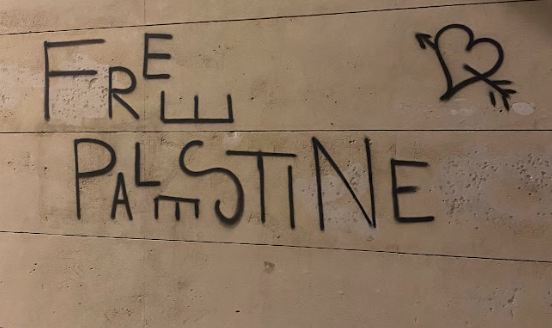 FREE
PALESTINE